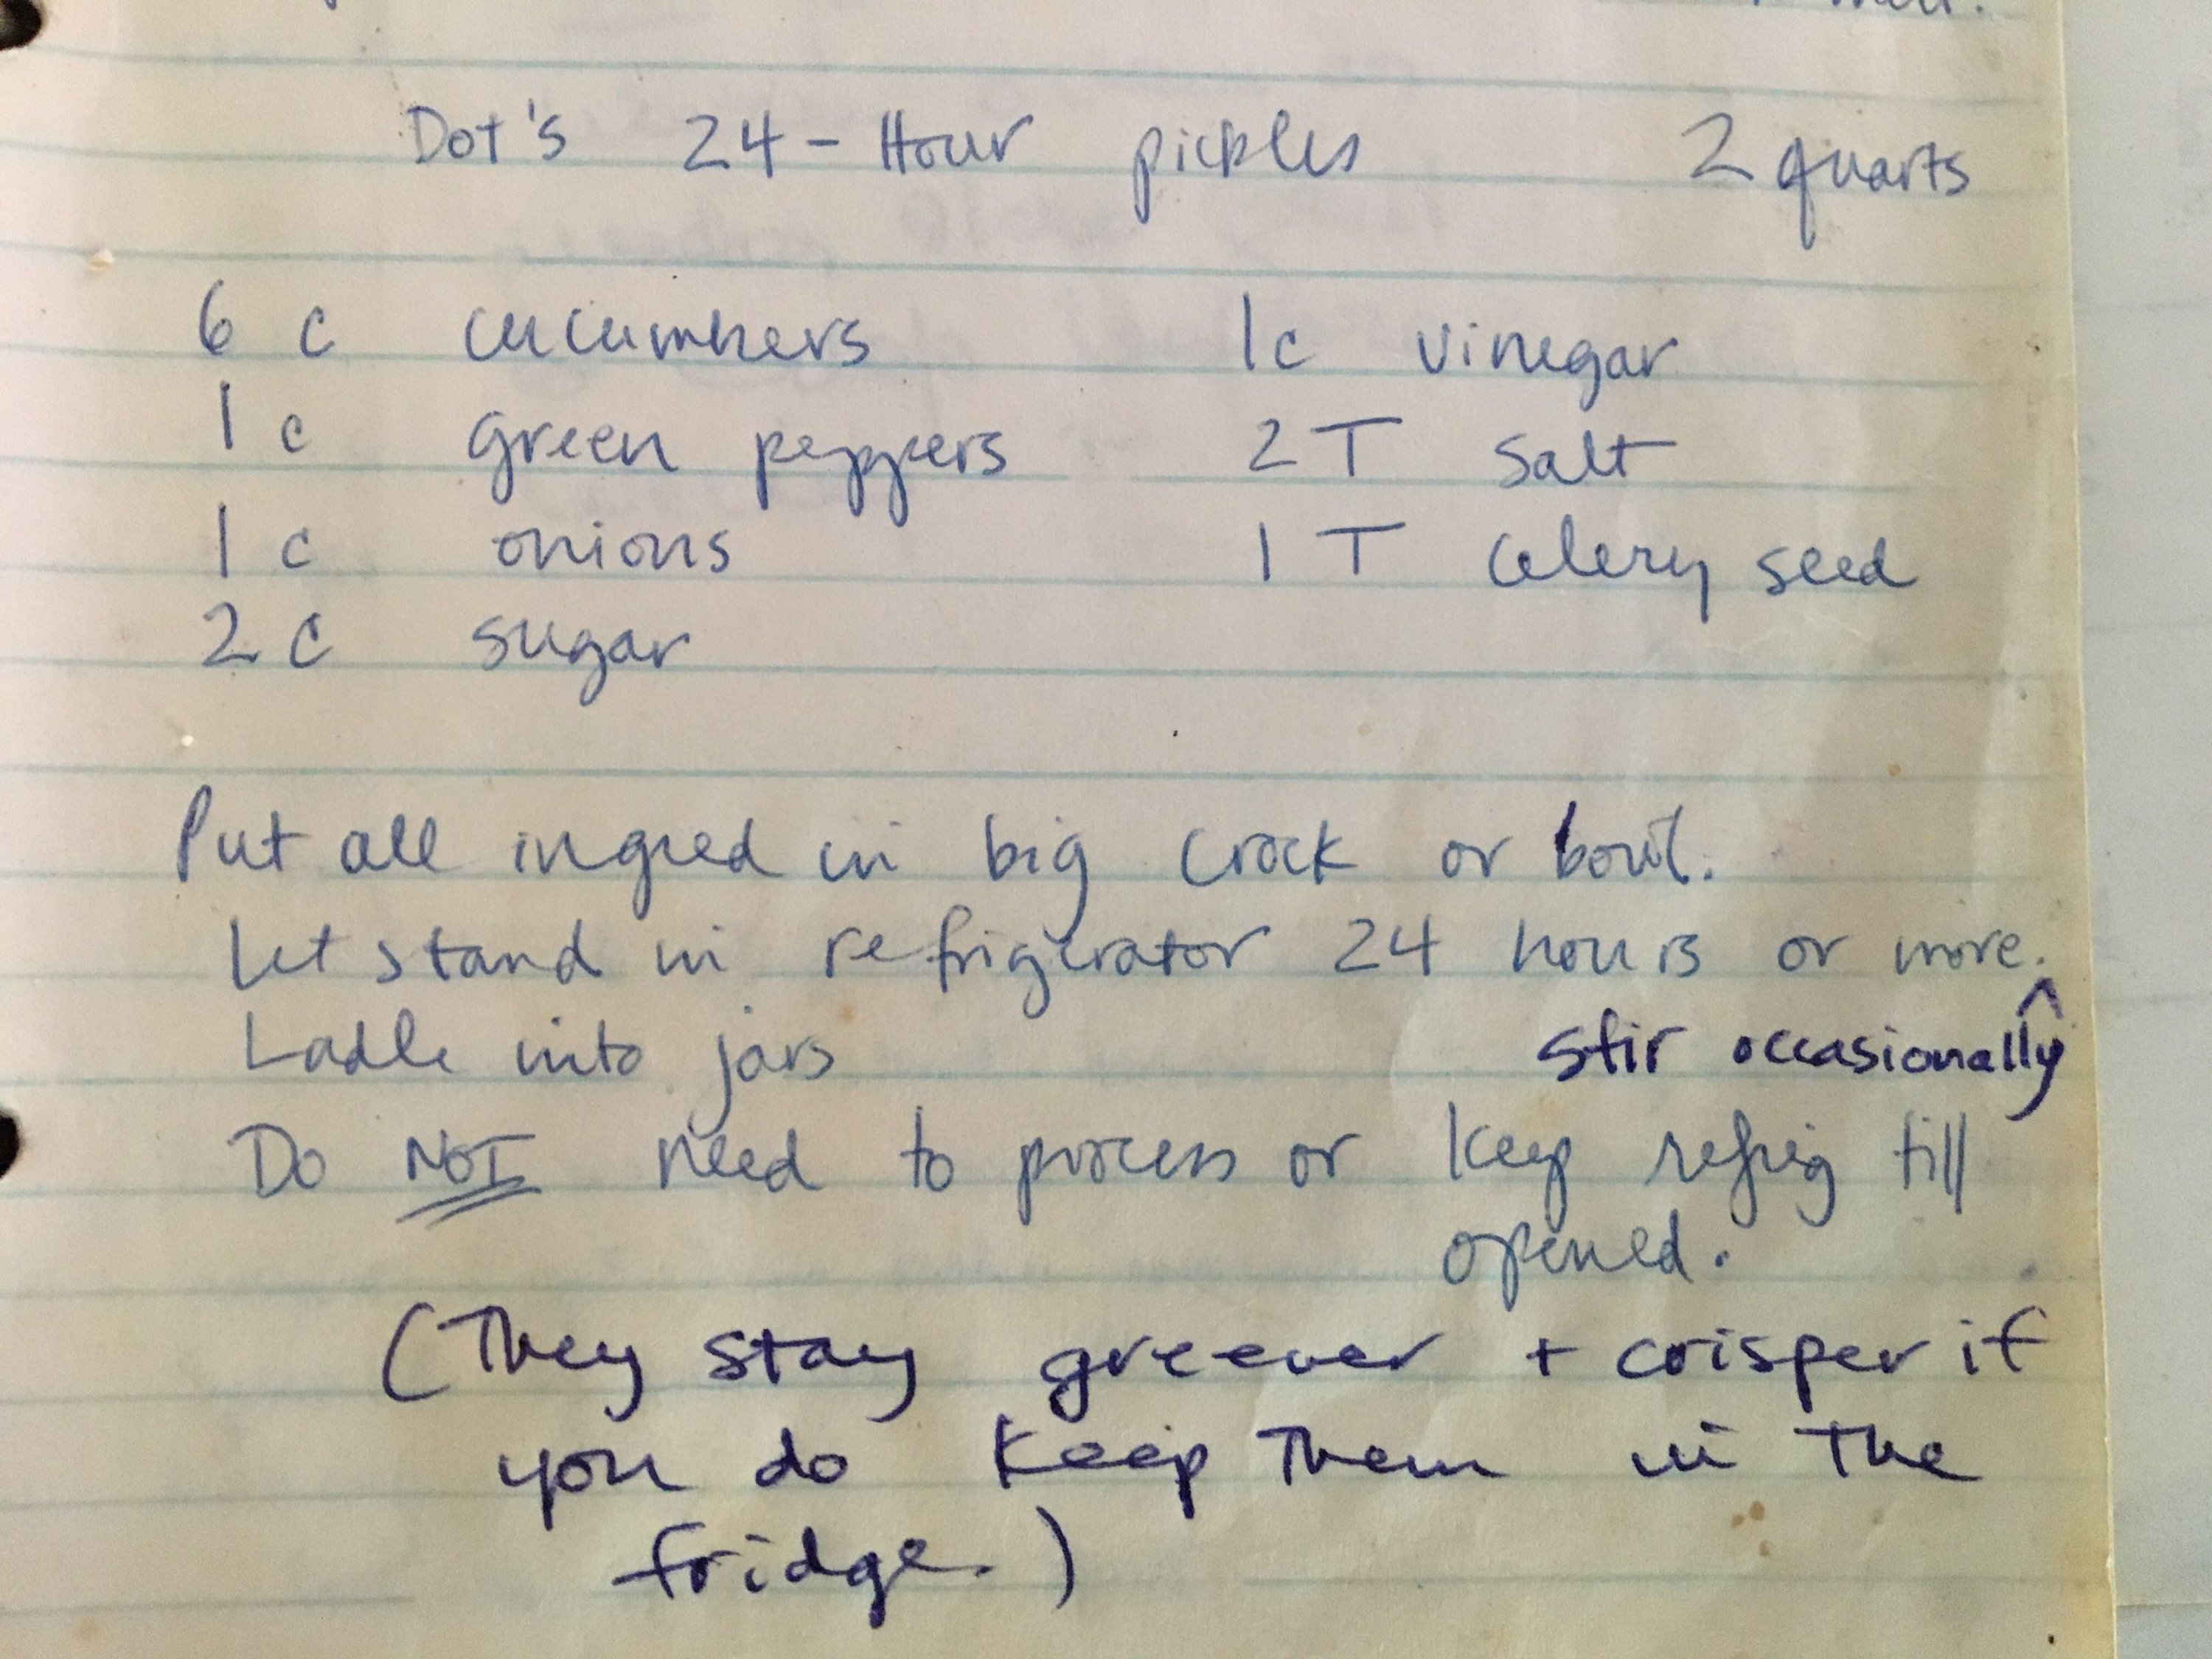 Dot's 24-Hour pickles 2 quarts
6 c cucumbers 1c vinegar
1 c green peppers 2 T salt
1 c onions 1 T celery seed
2 c sugar
Put all ingred in big crock or bowl.
Let stand in refrigerator 24 hours or more.
^
Ladle into jars stir occasionally
Do NOT need to process or keep refrig till
opened.
(They stay greener + crisper if
you do keep them in the
fridge.)